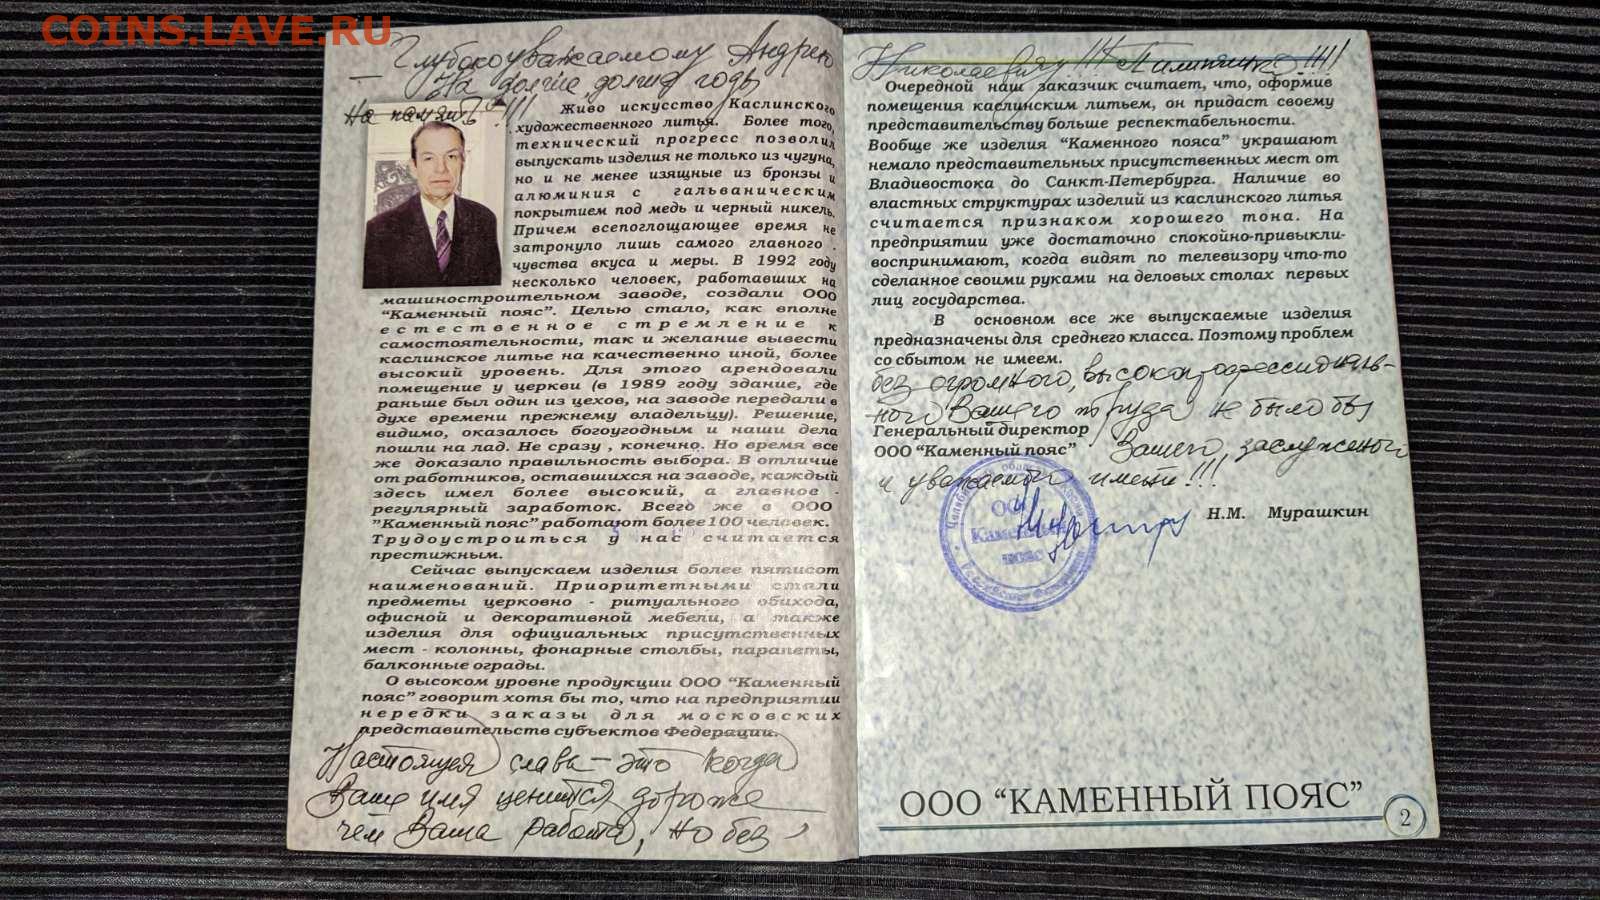 COINS.LAVE.RU
Глубокоуважаемому Андрею
На долгие, долгие годы
На память !!!
Живо искусство Каслинского
художественного литья. Более того,
технический прогресс позволил
выпускать изделия не только из чугуна,
но и не менее изящные из бронзы и
алюминия с гальваническим
покрытием под медь и черный никель.
Причем всепоглощающее время не
затронуло лишь самого главного -
чувства вкуса и меры. В 1992 году
несколько человек, работавших на
машиностроительном заводе, создали ООО
“Каменный пояс”. Целью стало, как вполне
естественное стремление к
самостоятельности, так и желание вывести
каслинское литье на качественно иной, более
высокий уровень. Для этого арендовали
помещение у церкви (в 1989 году здание, где
раньше был один из цехов, на заводе передали в
духе времени прежнему владельцу). Решение,
видимо, оказалось богоугодным и наши дела
пошли на лад. Не сразу , конечно. Но время все
же доказало правильность выбора. В отличие
от работников, оставшихся на заводе, каждый
здесь имел более высокий, а главное -
регулярный заработок. Всего же в ООО
”Каменный пояс” работают более 100 человек.
Трудоустроиться у нас считается
престижным.
Сейчас выпускаем изделия более пятисот
наименований. Приоритетными стали
предметы церковно - ритуального обихода,
офисной и декоративной мебели, а также
изделия для официальных присутственных
мест - колонны, фонарные столбы, парапеты,
балконные ограды.
О высоком уровне продукции ООО “Каменный
пояс” говорит хотя бы то, что на предприятии
нередки заказы для московских
представительств субъектов Федерации.
Настоящая слава – это когда
Ваше имя ценится дороже
чем Ваша работа, но без
Николаевичу !!! !!!!
Очередной наш заказчик считает, что, оформив
помещения каслинским литьем, он придаст своему
представительству больше респектабельности.
Вообще же изделия “Каменного пояса” украшают
немало представительных присутственных мест от
Владивостока до Санкт-Петербурга. Наличие во
властных структурах изделий из каслинского литья
считается признаком хорошего тона. На
предприятии уже достаточно спокойно-привыкли-
воспринимают, когда видят по телевизору что-то
сделанное своими руками на деловых столах первых
лиц государства.
В основном все же выпускаемые изделия
предназначены для среднего класса. Поэтому проблем
со сбытом не имеем.
без огромного, высокопрофессиональ-
ного Вашего труда не было бы
Генеральный директор
ООО “Каменный пояс”
Вашего, заслуженого
и уважаемого имени!!!
ООО
Каменный
пояс
Н.М. Мурашкин
ООО “КАМЕННЫЙ ПОЯС”
2